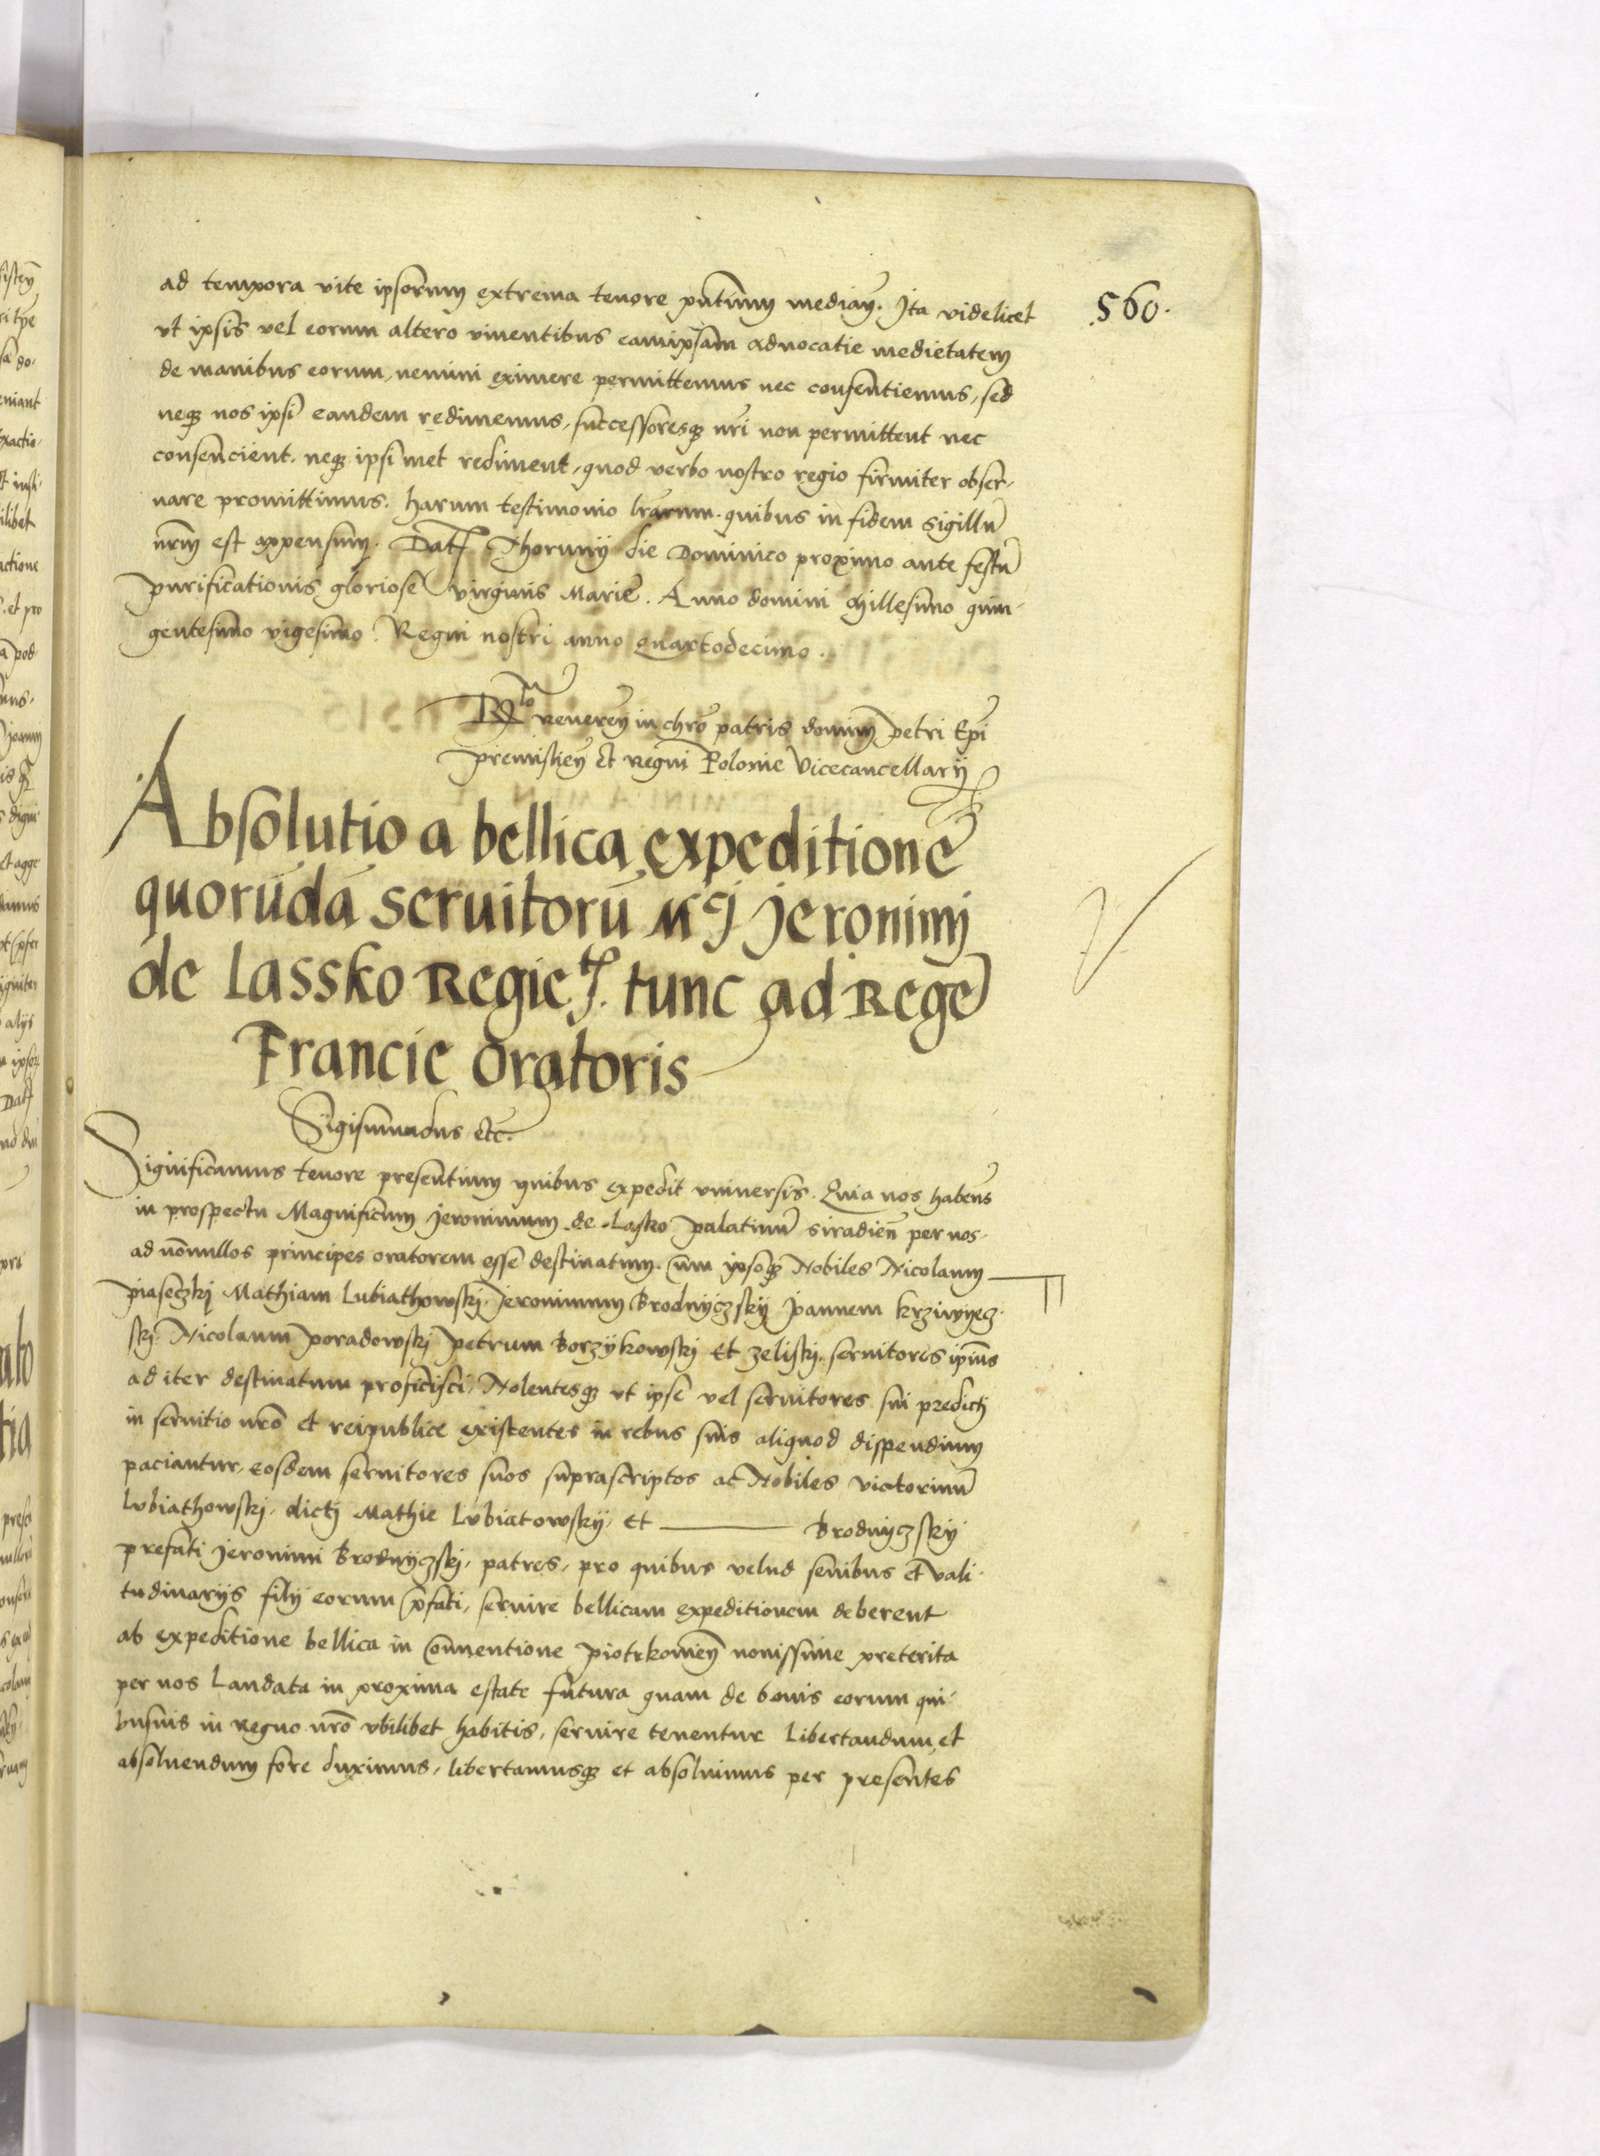 560.
ad tempora vite ipsorum extrema tenore pñtium median̄. Ita videlicet
vt ipsis vel eorum altero viuentibus eamipsam aduocatie medietatem
de manibus eorum, nemini eximere permittemus nec consentiemus, sed
neq3 nos ipsi eandem redimemus, successoresq3 nr̄i non permittent nec
consencient. neq3 ipsimet rediment, quod verbo nostro regio firmiter obser-
uare promittimus. harum testimonio lr̄arum. quibus in fidem sigillū
nr̄m est appensum. Datꝭ Thorunij die Dominico proximo ante festū
purificationis gloriose virginis Marie. Anno domini Millesimo quin-
gentesimo vigesimo. Regni nostri anno Quartodecimo.
Rlo Reueren̄ in chro patris domini petri Epi
premislien̄ et Regni Polonie Vicecancellarij
Absolutio a bellica expeditione
quorūdā seruitorū Mci Jeronimi
de Lassko Regie. tunc ad Regē
Francie Oratoris
Sigismundus etc.
Significamus tenore presentium quibus expedit vniuersis. Quia nos habens
in prospectu Magnificum Jeronimum de Lasko palatinū siradien̄ per nos
ad nōnullos principes oratorem esse destinatum. cum ipsoq3 Nobiles Nicolaum
piaseczkj Mathiam Lubiathowskj, Jeronimum Brodnyczskij Joannem krziwyecz
skj. Nicolaum poradowskj petrum Borzykowskj et zeliskj. seruitores ipius
ad iter destinatum proficisci, Nolentesq3 vt ipse vel seruitores sui predictj
in seruitio nr̄o et reipublice existentes in rebus suis aliquod dispendium
paciantur, eosdem seruitores suos suprascriptos ac Nobiles victorinū
Lubiathowskj, dictj Mathie Lubiatowskij, et ——— Brodnyczskij
prefati Jeronimi Brodnyczskj, patres, pro quibus velud senibus et vali-
tudinarijs filij eorum p̄fati, seruire bellicam expeditionem deberent
ab expeditione bellica in Conuentione Piotrkouien̄ nouissime preterita
per nos Laudata in proxima estate futura quam de bonis eorum qui-
busuis in regno nr̄o vbilibet habitis, seruire tenentur Libertandum, et
absoluendum fore duximus, libertamusq3 et absoluimus per presentes